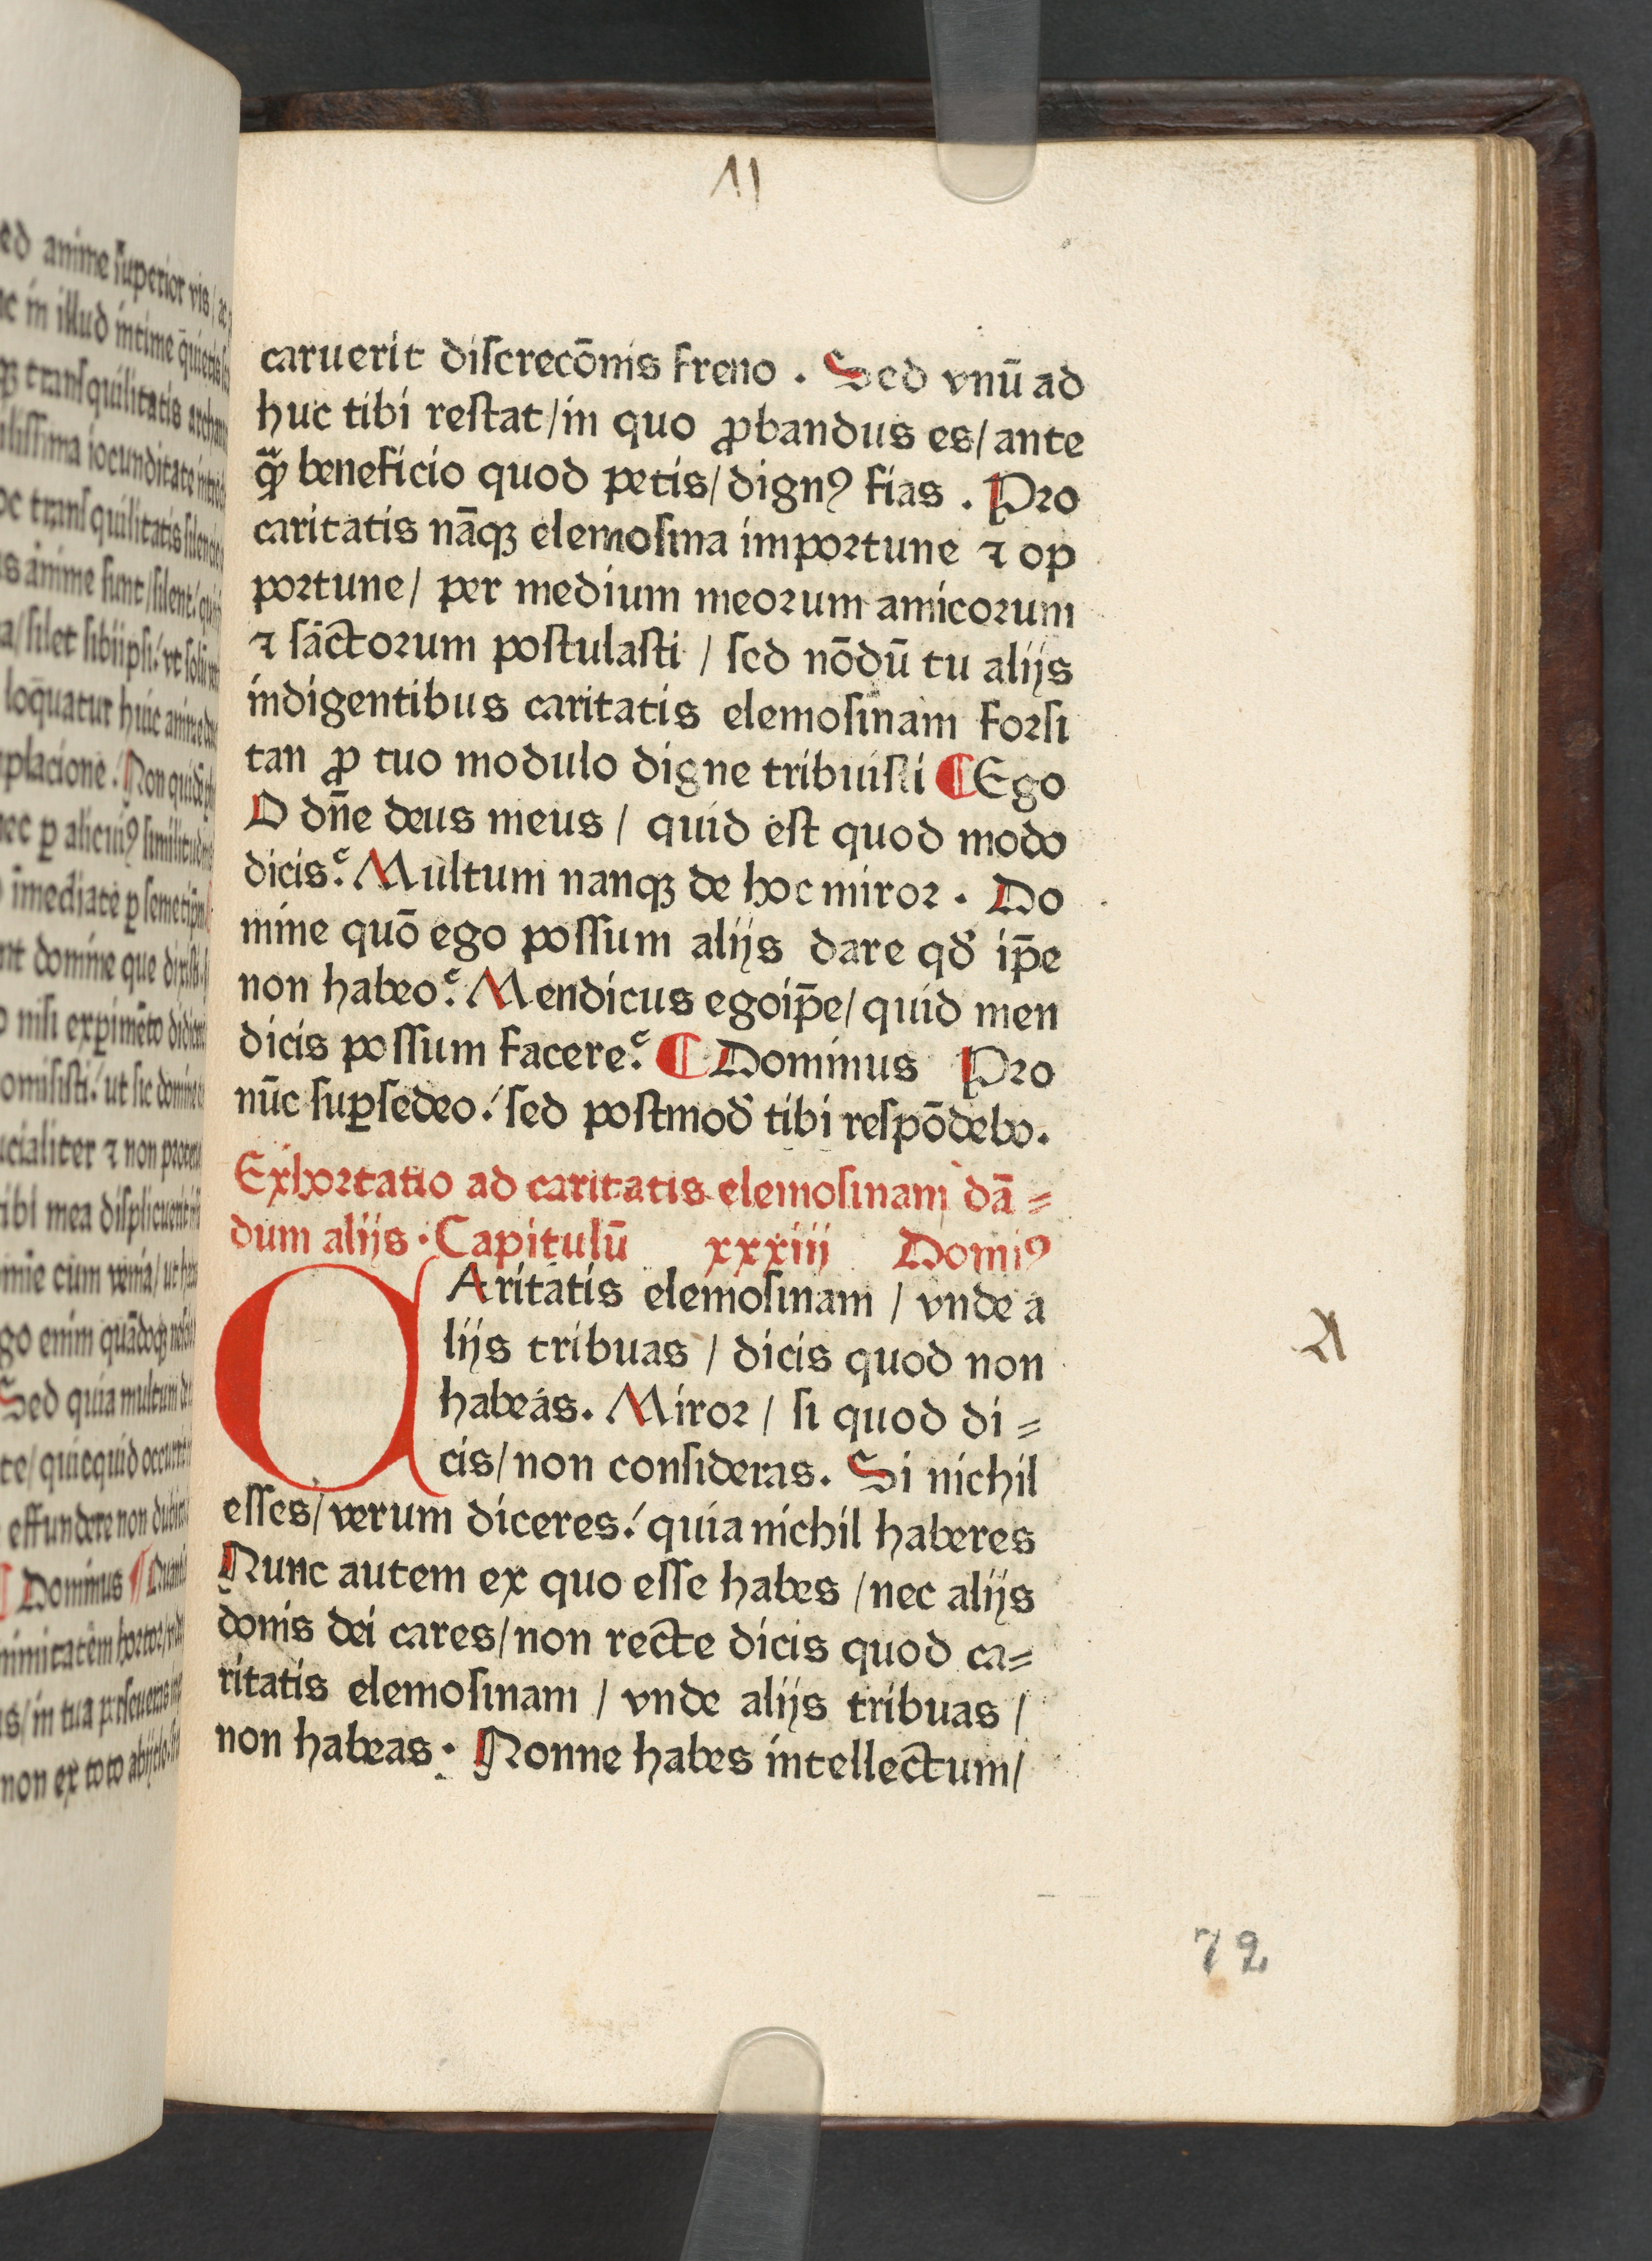 11
caruerit discrecōnis freno . Sed vnū ad
huc tibi restat/in quo ꝓbandus es/ante
qᷓꝫ beneficio quod petis/dignꝰ fias . Pro
caritatis nāqꝫ elemosina importune ⁊ op
portune/ per medium meorum amicorum
⁊ sāctorum postulasti / sed nōdū tu alijs
indigentibus caritatis elemosinam forsi
tan ꝓ tuo modulo digne tribuisti ¶ Ego
O dn̄e deus meus / quid est quod modo
dicis? Multum nanqꝫ de hoc miror . Do
mine quō ego possum alijs dare qđ ip̄e
non habeo? Mendicus egoip̄e/quid men
dicis possum facere? ¶ Dominus Pro
nūc suꝑsedeo./ sed postmođ tibi respōdebo.
Exhortatio ad caritatis elemosinam dā =
dum alijs . Capitulū xxxiii Domiꝰ
CAritatis elemosinam / vnde a
lijs tribuas / dicis quod non
habeas. Miror / si quod di =
cis/non consideras. Si nichil
esses/verum diceres./ quia nichil haberes
Nunc autem ex quo esse habes /nec alijs
donis dei cares/non recte dicis quod ca=
ritatis elemosinam / vnde alijs tribuas /
non habeas . Nonne habes intellectum/
72